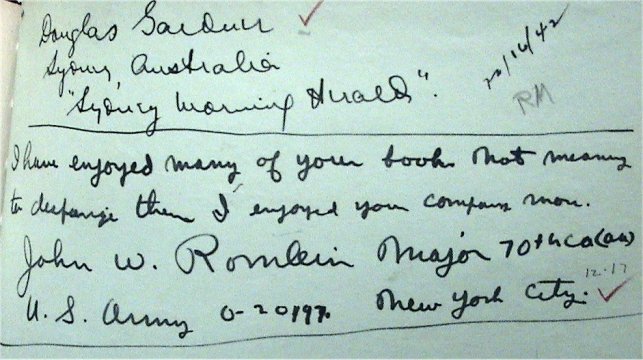 Douglas Gardner
Sydney, Australia
"Sydney Morning Herald".
RM
I have enjoyed many of your books Not meaning
to disparige them I enjoyed your company more.
John W. Romlein Major 70th CA(AA)
12.17
U. S. Army O-20197. New York City.